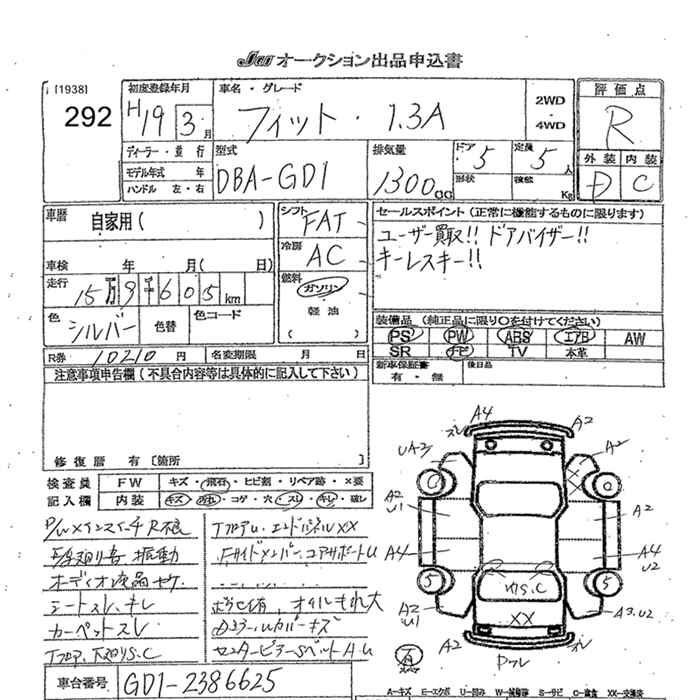 Jau オークション出品申込書
[1938]
292
初度登録年月
H19 3月
車名・グレード
フィット・1.3A
2WD
・
4WD
評価点
R
外装 内装
D C
ディーラー・並行
モデル年式 年
ハンドル 左・右
型式
DBA-GD1
排気量
1300CC
ドア 5
定員 5人
形状
積載 Kg
車歴
自家用( )
車検 年 月( 日)
走行
15万9千605km
色
シルバー
色替
色コード
R券 10210 円
名変期限 月 日
シフト FAT
冷房 AC
燃料
ガソリン
軽油
( )
セールスポイント(正常に機能するものに限ります)
ユーザー買取!! ドアバイザー!!
キーレスキー!!
装備品(純正品に限り○を付けてください)
PS PW ABS エアB AW
SR ナビ TV 本革
新車保証書
有・無
後日品
注意事項申告欄(不具合内容等は具体的に記入して下さい)
修復歴 有[箇所 ]
検査員
記入欄
FW キズ・飛石・ヒビ割・リペア跡・×要
内装 キズ・汚れ・コゲ・穴・スレ・キレ・破レ
P/Wメインスイッチ R不良
振動
オーディオ液晶ヤケ
シートスレ、キレ
カーペットスレ
S.C
エンドパネルXX
Fサイドメンバー、コアサポートU
オイルもれ大
キズ
センターピラー A.U
車台番号 GD1-2386625
A4
スレ
A2
UA3
A2
A2
U1
A2
A4
A4
U2
5
5
S.C
A2
U1
A3.U2
XX
A2
スレ
A-キズ E-エクボ U-凹み W-補修跡 S-サビ C-腐食 XX-交換済